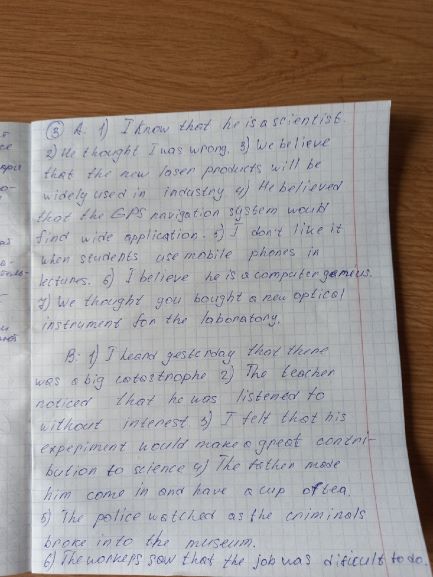 ③ A: 1) I know that he is a scientist.
2) He thought I was wrong. 3) We believe
that the new laser products will be
widely used in industry 4) He believed
that the GPS navigation system would
find wide application. 5) I don't like it
when students use mobile phones in
lectures. 6) I believe he is a computer genieus.
7) We thought you bought a new optical
instrument for the laboratory.
B: 1) I heard yesterday that there
was a big catastrophe 2) The teacher
noticed that he was listened to
without interest 3) I felt that his
experiment would make a great contri-
bution to science 4) The father made
him come in and have a cup of tea.
5) The police watched as the criminals
broke into the museum.
6) The workers saw that the job was dificult to do.